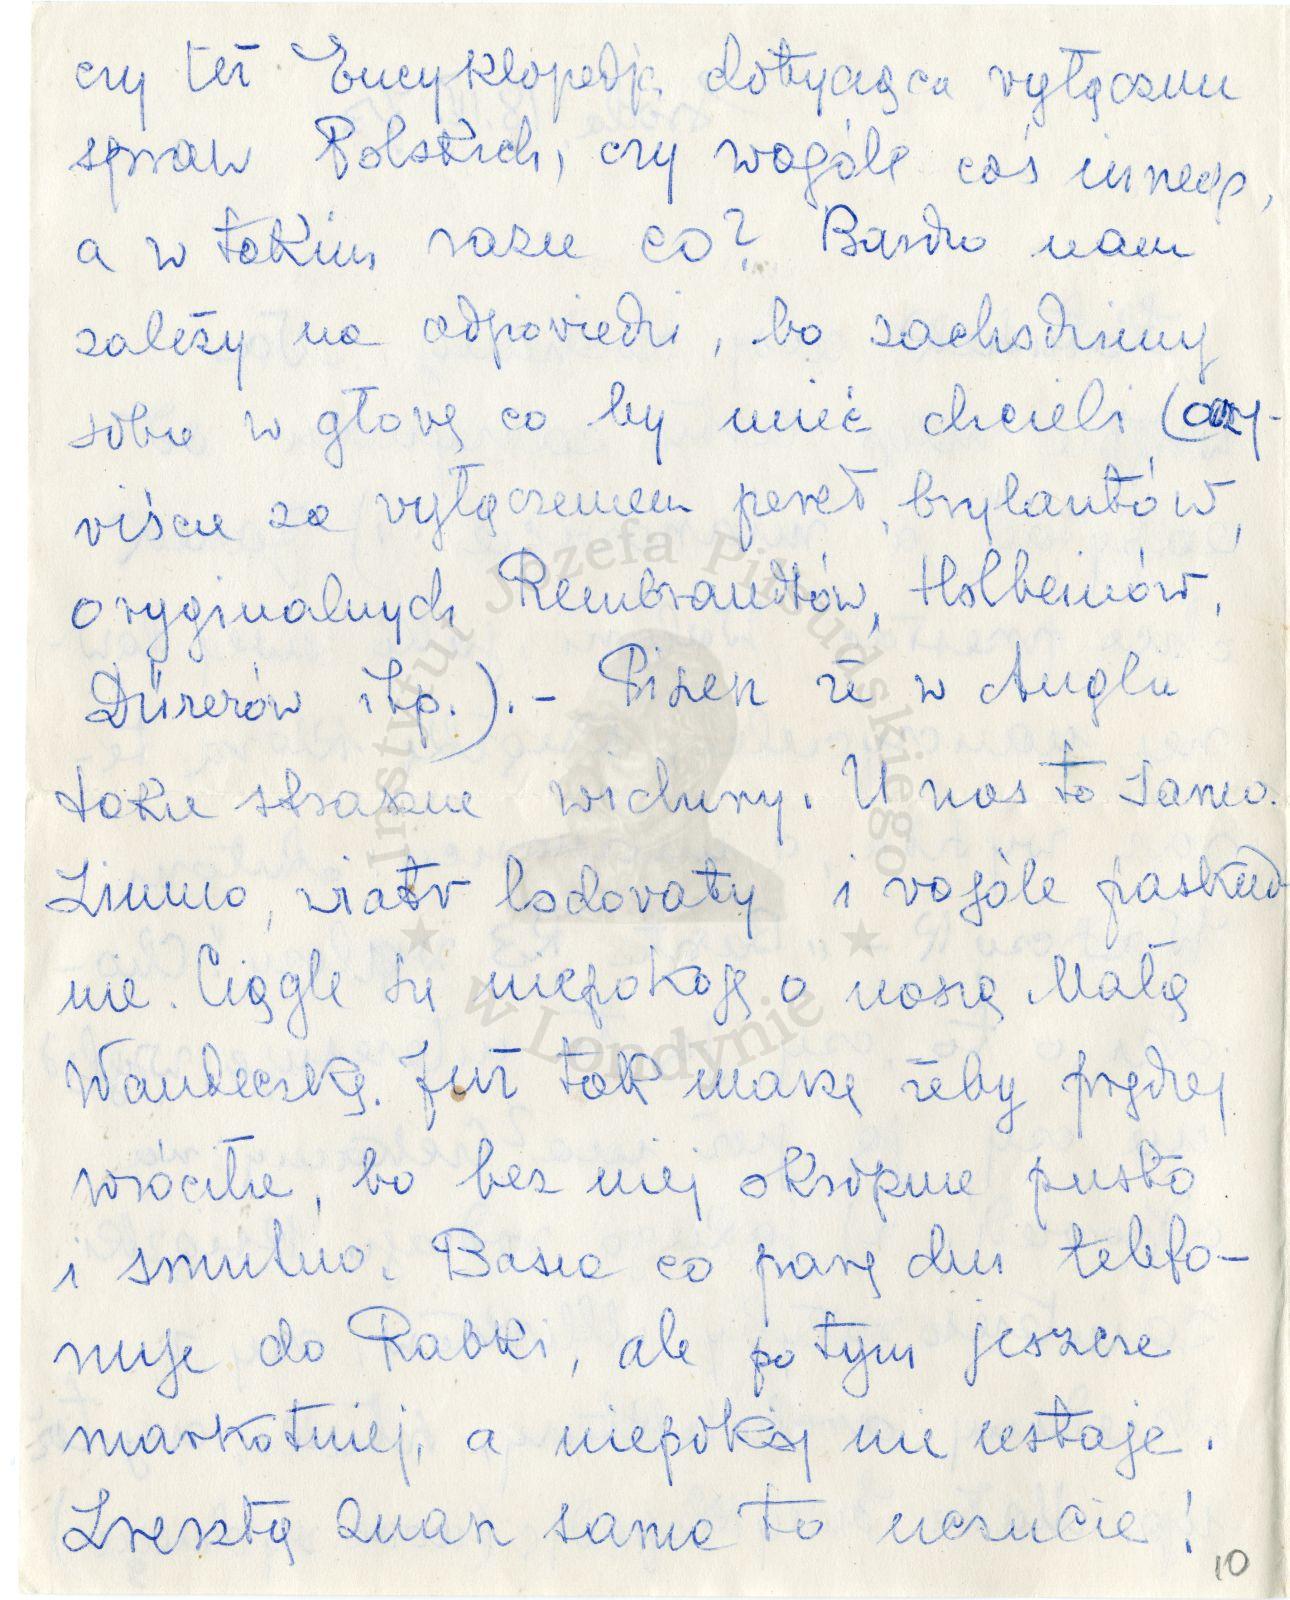 czy też Encyklopedja dotycząca wyłącznie
spraw Polskich, czy wogóle coś innego,
a w takim razie co? Bardzo nam
zależy na odpowiedzi, bo zachodzimy
sobie w głowę co by mieć chcieli (oczy-
wiście za wyłączeniem pereł, brylantów,
oryginalnych Rembrandtów, Holbeinów,
Dürerów itp.). - Piszesz że w Anglii
takie straszne wichury. U nas to samo.
Zimno, wiatr lodowaty i wogóle paskud-
nie. Ciągle się niepokoję o naszą Małą
Wandeczkę. Już tak marzę żeby prędzej
wróciła, bo bez niej okropnie pusto
i smutno. Basia co parę dni telefo-
nuje do Rabki, ale potym jeszcze
markotniej, a niepokój nie ustaje.
Zresztą znasz sama to uczucie!
10
Instytut Józefa Piłsudskiego
w Londynie